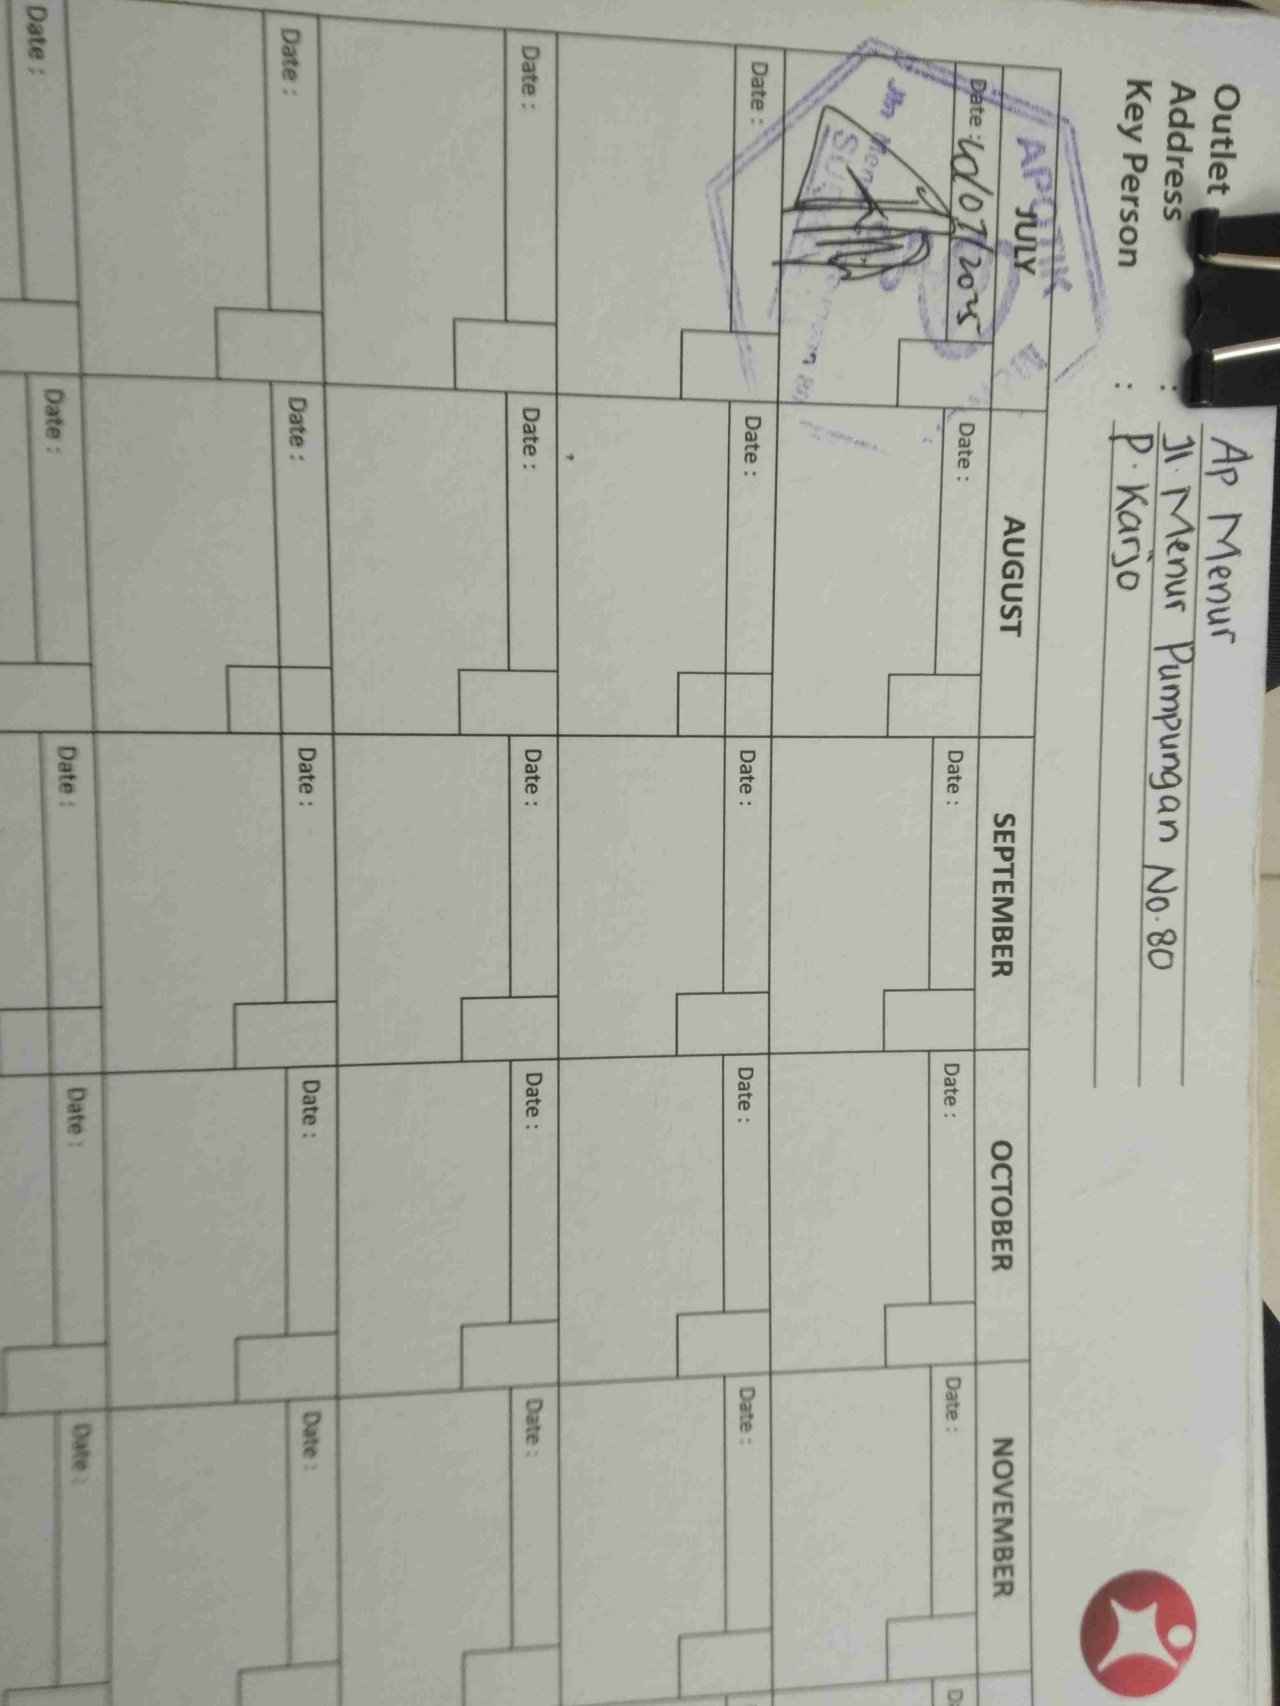 Outlet
Ap Menur
Address : Jl. Menur Pumpungan No. 80
Key Person : P. Karjo
JULY AUGUST SEPTEMBER OCTOBER NOVEMBER
APOTIK
Date : Date : Date : Date : Date :
Jln Men
Date : Date : Date : Date : Date :
Date : Date : Date : Date : Date :
Date : Date : Date : Date : Date :
Date : Date : Date : Date : Date :